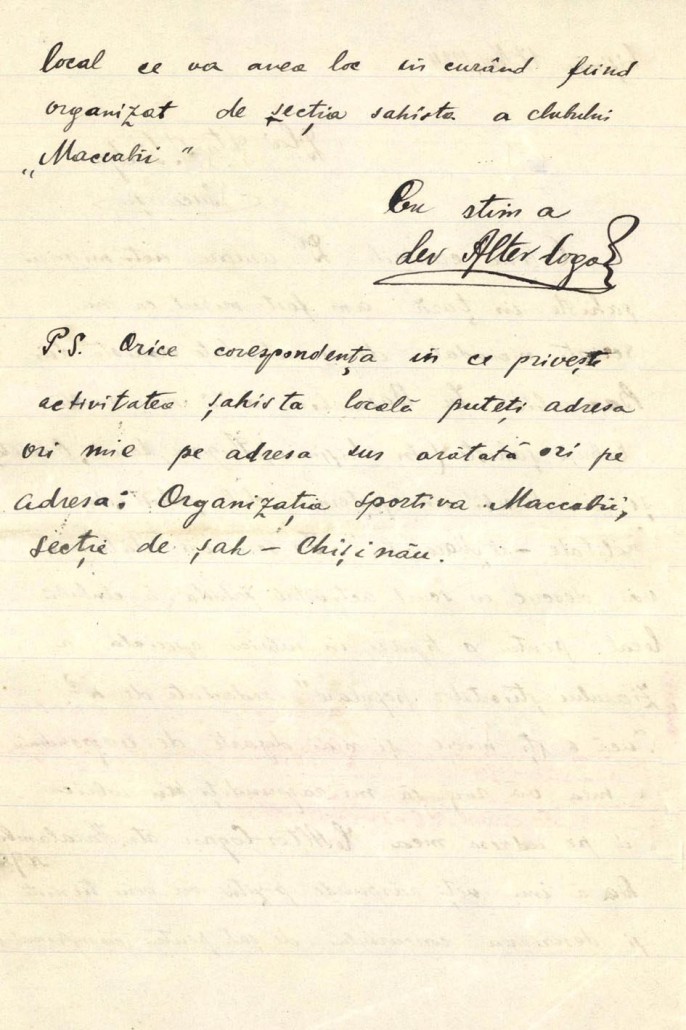 local ce va avea loc în curând fiind
organizat de secția sahista a clubului
„Maccabii"
Cu stima
dev Alter Logo
P.S. Orice corespondența in ce privește
activitatea șahista locală puteți adresa
ori mie pe adresa sus arătată ori pe
adresa: Organizația sportiva Maccabii,
secție de șah – Chișinău.